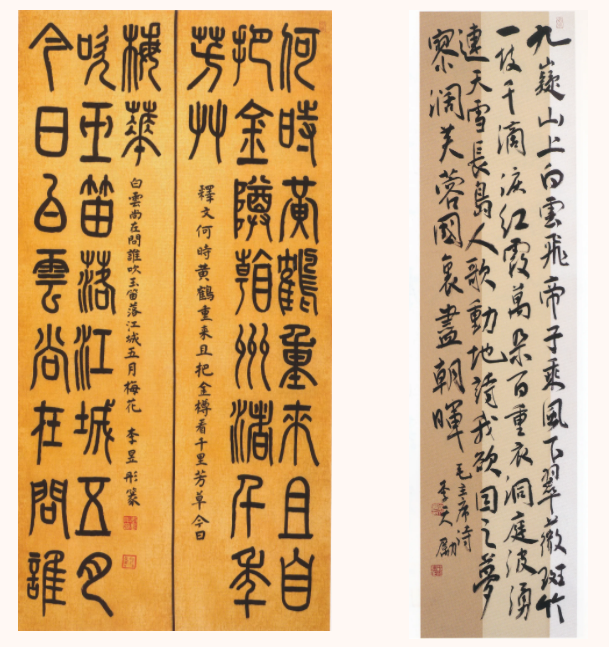 何時黃鶴重來且自
把金罇看州渚千年
芳艸
釋文何時黃鶴重来且把金樽看千里芳草今日
今日白雲尚在問誰
吹玉笛落江城五月
梅華
白雲尚在問誰吹玉笛落江城五月梅花 李昱彤篆
九嶷山上白雲飛帝子乘風下翠薇斑竹
一枝千滴淚紅霞萬朵百重衣洞庭波湧
連天雪長島人歌動地詩我欲因之夢
寥濶芙蓉國裏盡朝暉
毛主席詩
李天